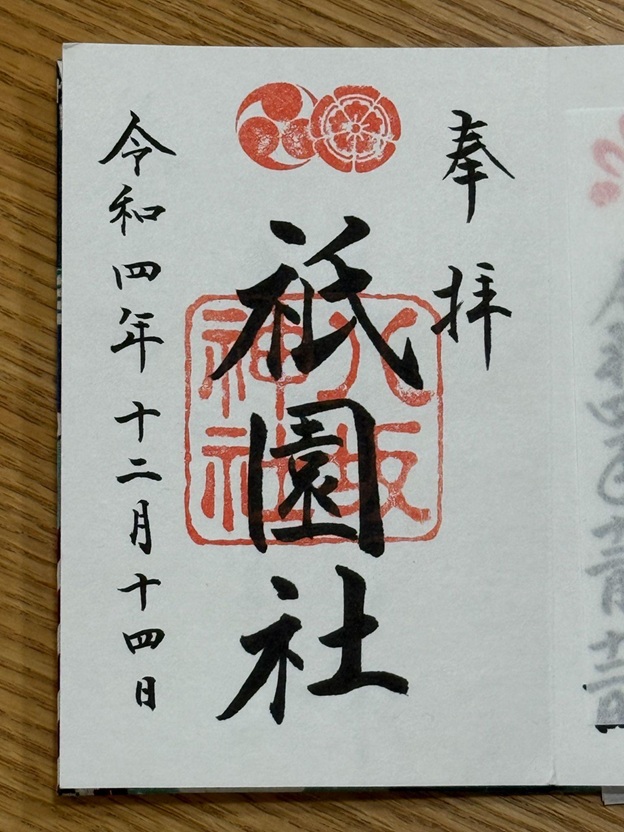 奉拝
祇園社
八坂
神社
令和四年十二月十四日